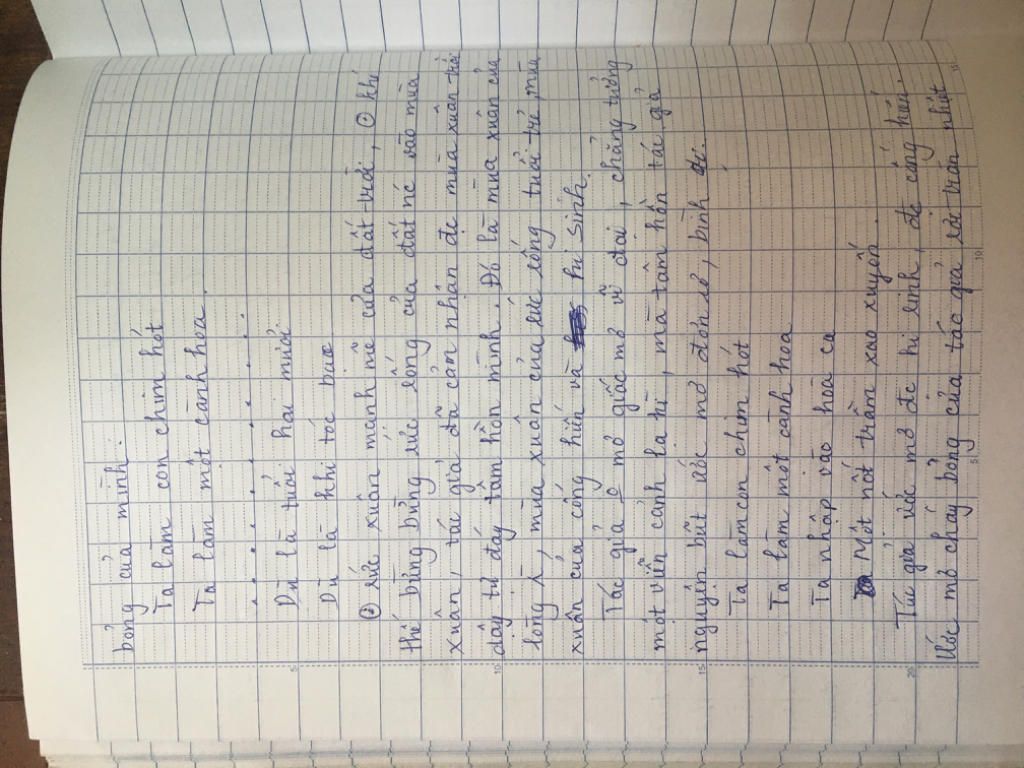 bỏng của mình.
Ta làm con chim hót
Ta làm một cành hoa.
. . . . . . . . . . .
Dù là tuổi hai mươi
Dù là khi tóc bạc
⊕ sức xuân mạnh mẽ của đất trời, ⊙ khí
thế bừng bừng sức sống của đất nc vào mùa
xuân, tác giả đã cảm nhận đc mùa xuân trỗi
dậy từ đáy tâm hồn mình. Đó là mùa xuân của
lòng , mùa xuân của sức sống tuổi trẻ, mùa
xuân của cống hiến và hi sinh.
Tác giả o mơ giấc mơ vĩ đại, chẳng tưởng
một viễn cảnh la kì, mà tâm hồn tác giả
nguyện bứt ước mơ đơn sơ, bình dc.
Ta làm con chim hót
Ta làm một cành hoa
Ta nhập vào hòa ca
Một nốt trầm xao xuyến.
Tác giả ước mơ đc hi sinh, đc cống hiến.
Ước mơ cháy bỏng của tác giả rất trân nhiệt
5
10
15
20
5
10
15